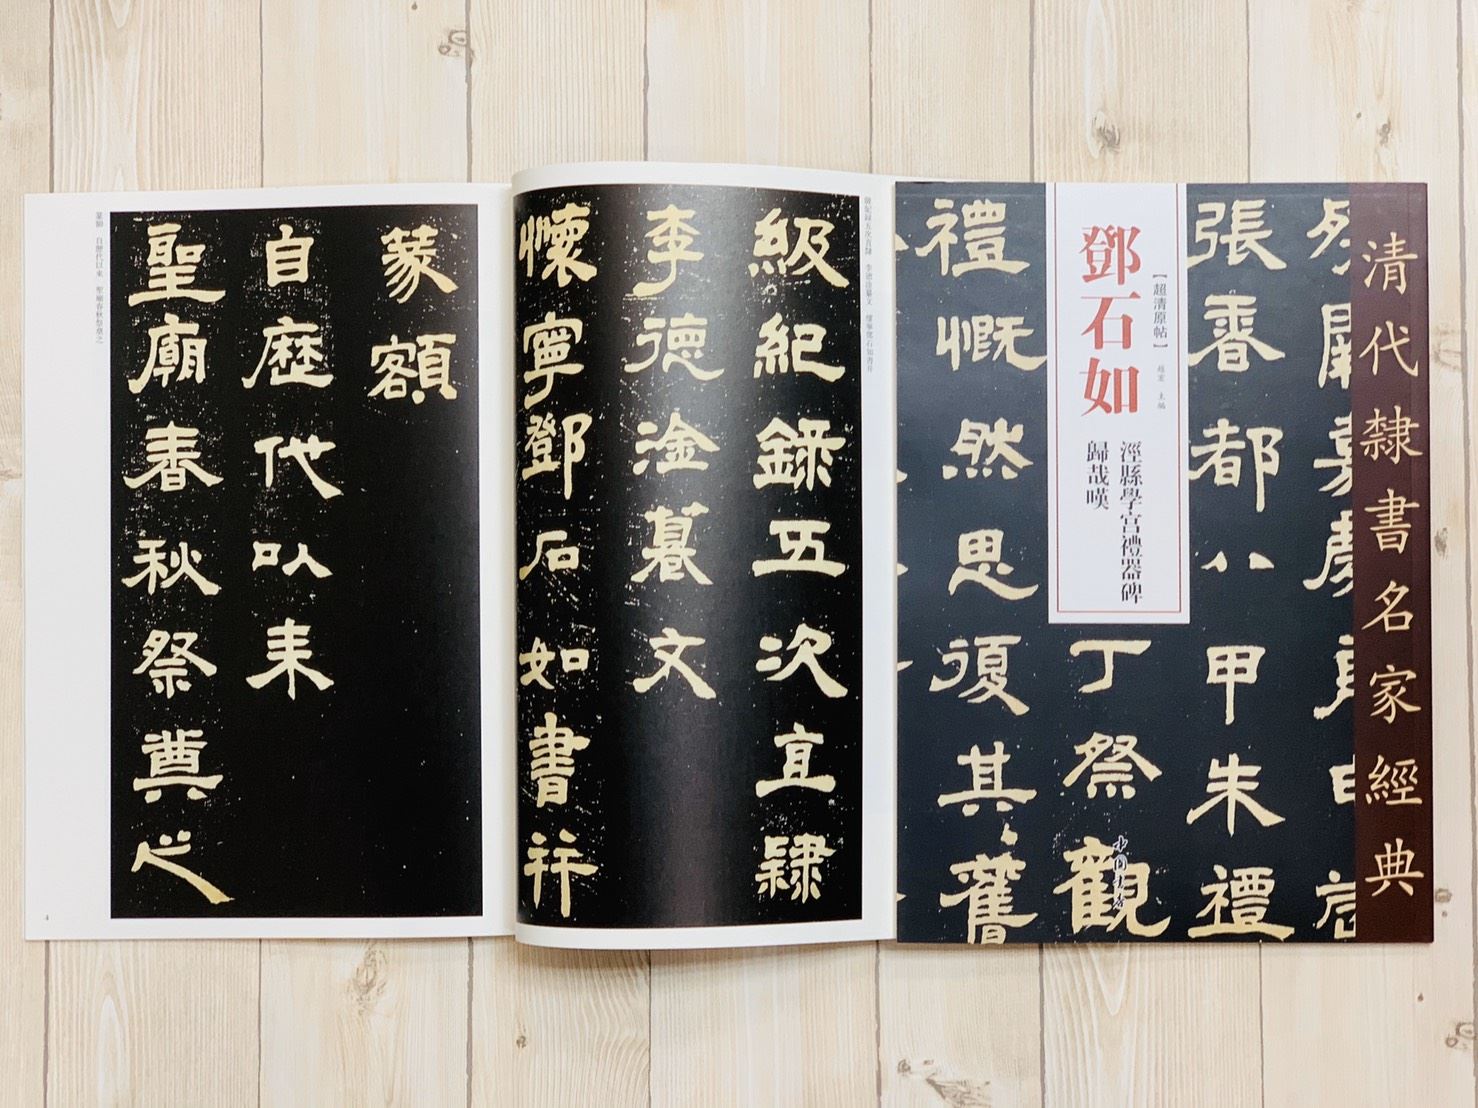 清代隸書名家經典
【超清原帖】
趙宏 主編
鄧石如
涇縣學宫禮器碑
歸哉嘆
張香都
八
甲朱禮
丁祭觀
禮慨然思復其舊
中国书店
級紀録五次直隸
李德淦篹文
懷寧鄧石如書并
篆額
自歷代以来
聖廟春秋祭奠之
級紀録五次直隸 李德淦篹文 懷寧鄧石如書并
篆額 自歷代以來 聖廟春秋祭奠之
4